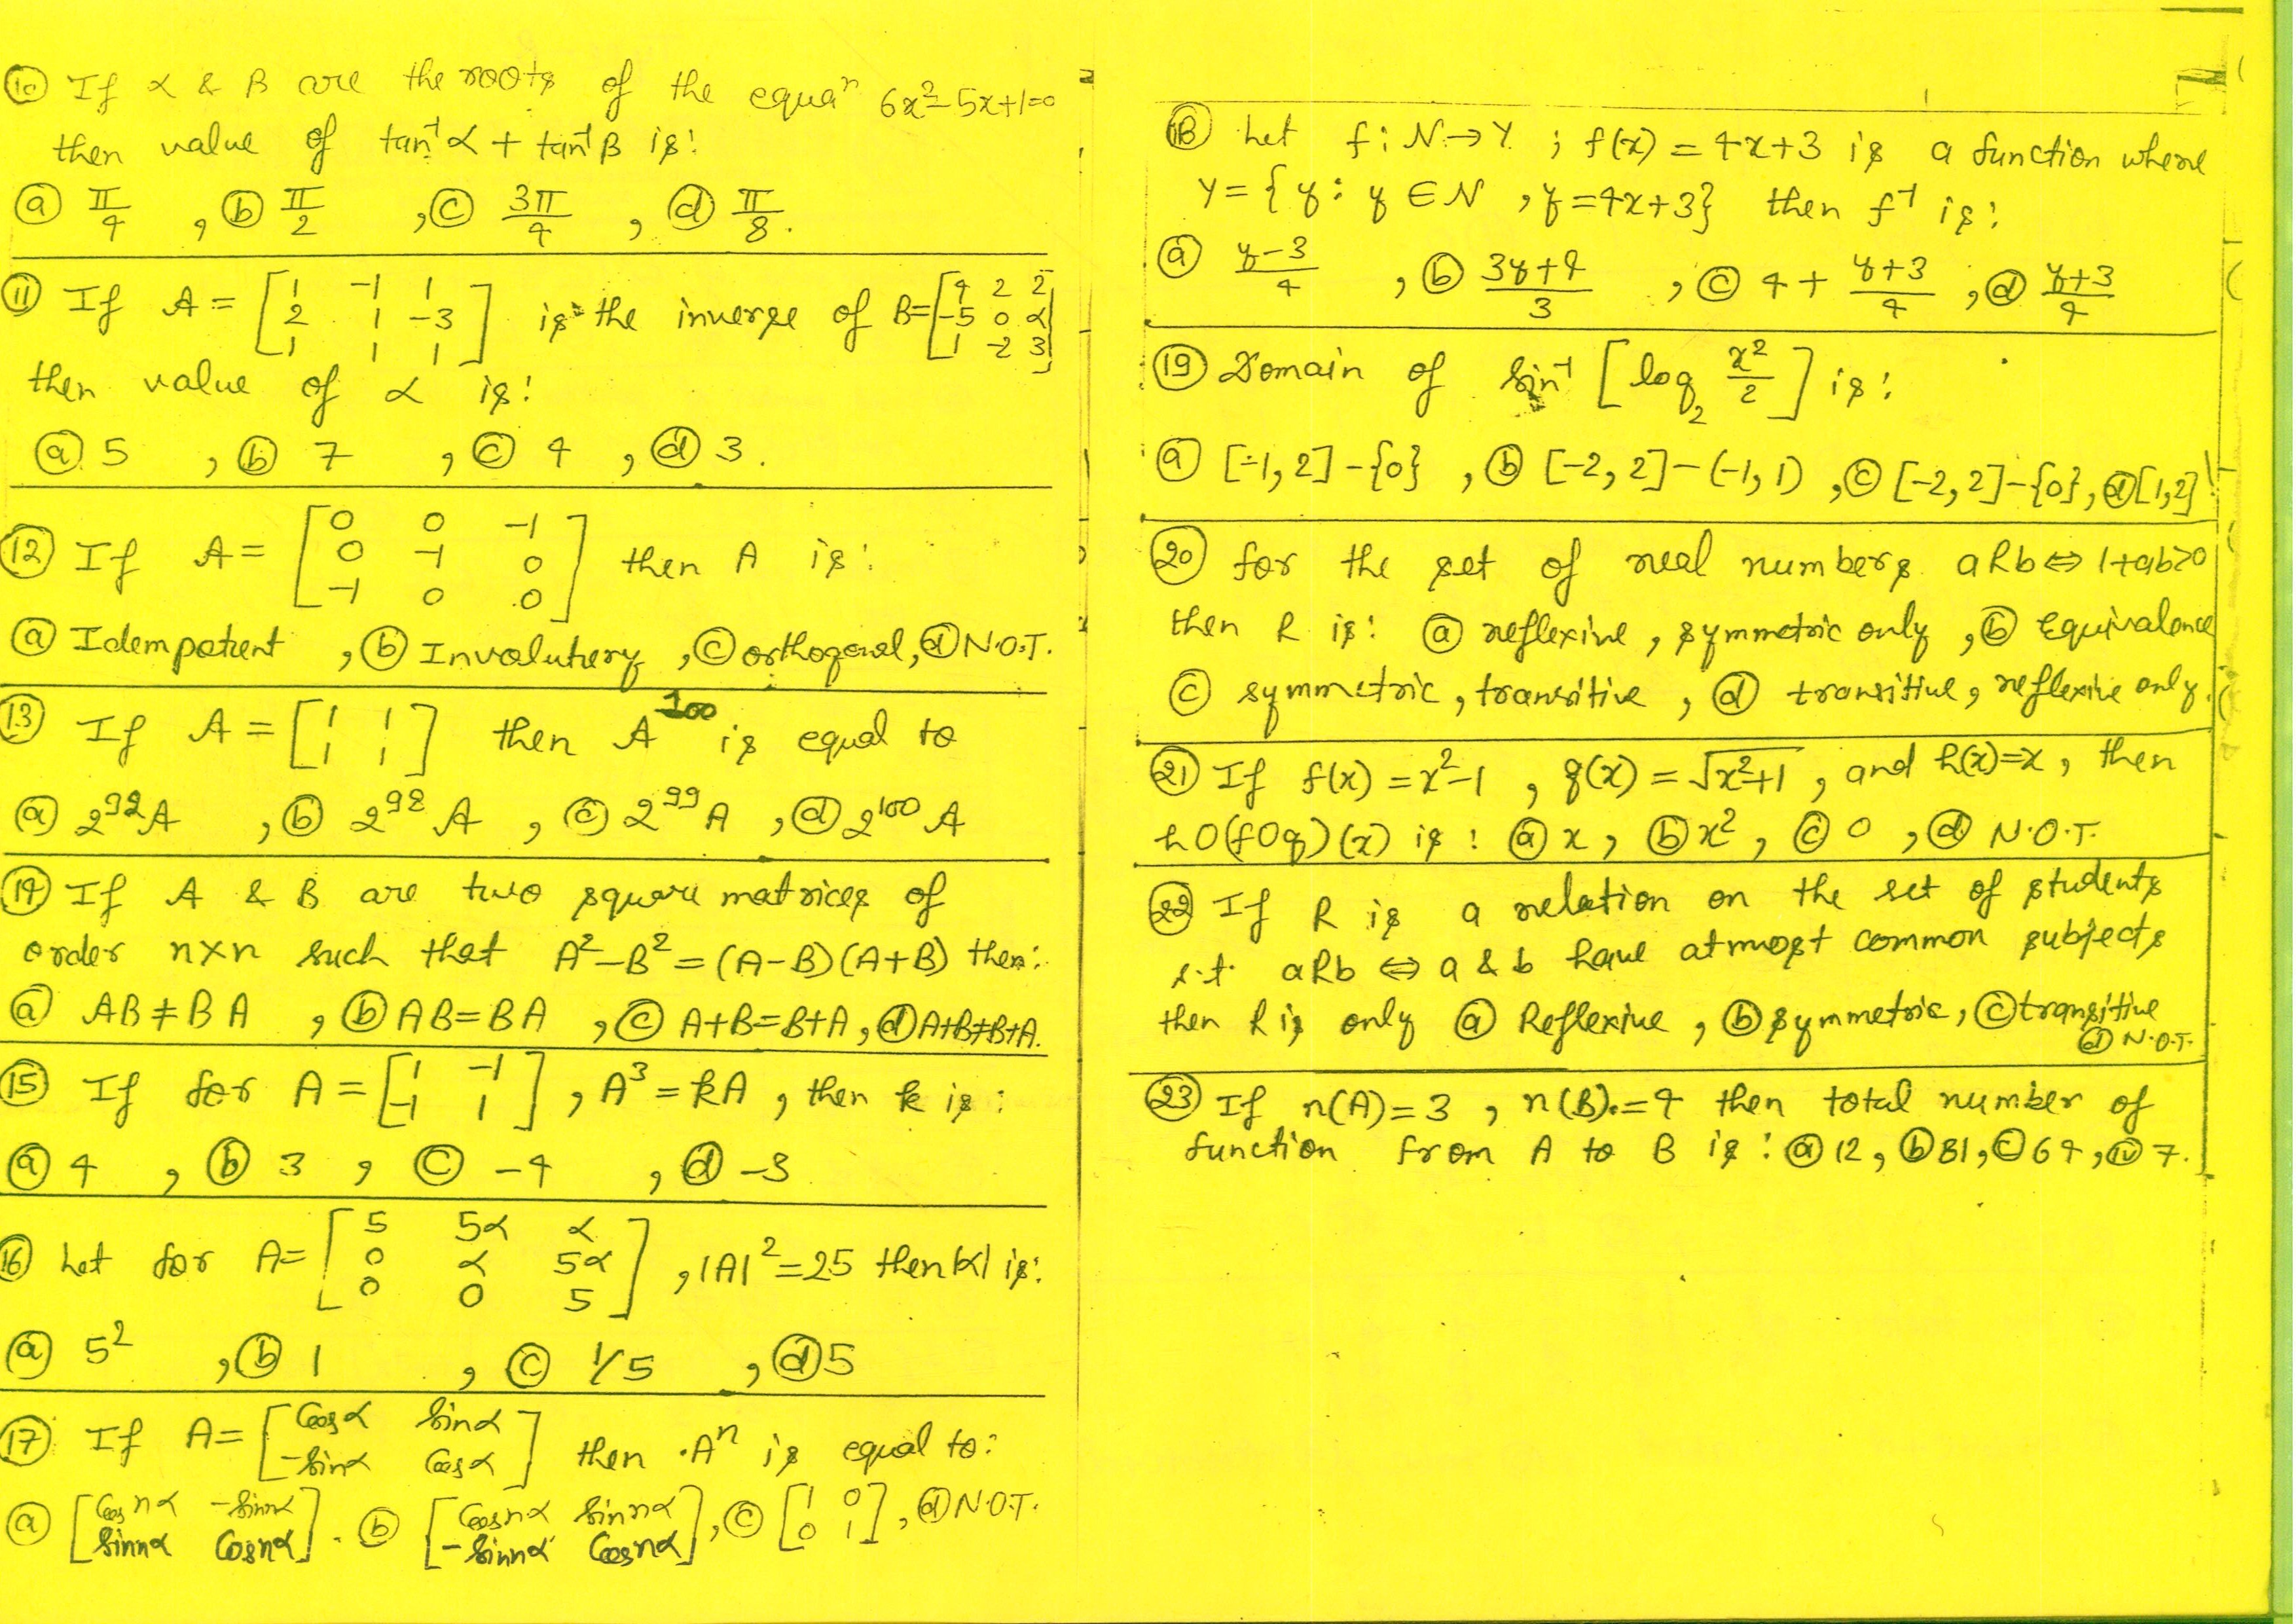 ⑩ If α & β are the roots of the equaⁿ 6x²-5x+1=0
then value of tan⁻¹α + tan⁻¹β is:
ⓐ π/4 , ⓑ π/2 , ⓒ 3π/4 , ⓓ π/8.
⑪ If A = [1 -1 1; 2 1 -3; 1 1 1] is the inverse of B=[4 2 2; -5 0 α; 1 -2 3]
then value of α is:
ⓐ 5 , ⓑ 7 , ⓒ 4 , ⓓ 3.
⑫ If A = [0 0 -1; 0 -1 0; -1 0 0] then A is:
ⓐ Idempotent , ⓑ Involutery , ⓒ orthogonal, ⓓ N.O.T.
⑬ If A = [1 1; 1 1] then A¹⁰⁰ is equal to
ⓐ 2⁹²A , ⓑ 2⁹⁸ A , ⓒ 2⁹⁹ A , ⓓ 2¹⁰⁰ A
⑭ If A & B are two square matrices of
order n×n such that A²-B² = (A-B)(A+B) then:
ⓐ AB≠BA , ⓑ AB=BA , ⓒ A+B=B+A, ⓓ A+B≠B+A.
⑮ If for A = [1 -1; -1 1] , A³ = kA , then k is:
ⓐ 4 , ⓑ 3 , ⓒ -4 , ⓓ -3
⑯ Let for A= [5 5α α; 0 α 5α; 0 0 5] , |A|² = 25 then |α| is:
ⓐ 5² , ⓑ 1 , ⓒ 1/5 , ⓓ 5
⑰ If A= [Cosα Sinα; -Sinα Cosα] then Aⁿ is equal to:
ⓐ [Cosnα -Sinnα; Sinnα Cosnα]. ⓑ [Cosnα Sinnα; -Sinnα Cosnα], ⓒ [1 0; 0 1], ⓓ N.O.T.
⑱ Let f: N→Y ; f(x) = 4x+3 is a function where
Y = {y: y ∈ N , y=4x+3} then f⁻¹ is:
ⓐ (y-3)/4 , ⓑ (3y+4)/3 , ⓒ 4 + (y+3)/4 , ⓓ (y+3)/4
⑲ Domain of Sin⁻¹ [log₂ x²/2] is:
ⓐ [-1, 2] - {0} , ⓑ [-2, 2] - (-1, 1) , ⓒ [-2, 2] - {0}, ⓓ [1,2]
⑳ for the set of real numbers aRb ⇔ 1+ab>0
then R is: ⓐ reflexive, symmetric only , ⓑ Equivalence
ⓒ symmetric, transitive , ⓓ transitive, reflexive only.
㉑ If f(x) = x²-1 , g(x) = √(x²+1) , and h(x)=x, then
hO(fOg)(x) is: ⓐ x, ⓑ x², ⓒ 0 , ⓓ N.O.T.
㉒ If R is a relation on the set of students
s.t. aRb ⇔ a & b have atmost common subjects
then R is only ⓐ Reflexive , ⓑ symmetric, ⓒ transitive
ⓓ N.O.T.
㉓ If n(A)=3 , n(B)=4 then total number of
function from A to B is: ⓐ 12, ⓑ 81, ⓒ 64, ⓘⓥ 7.